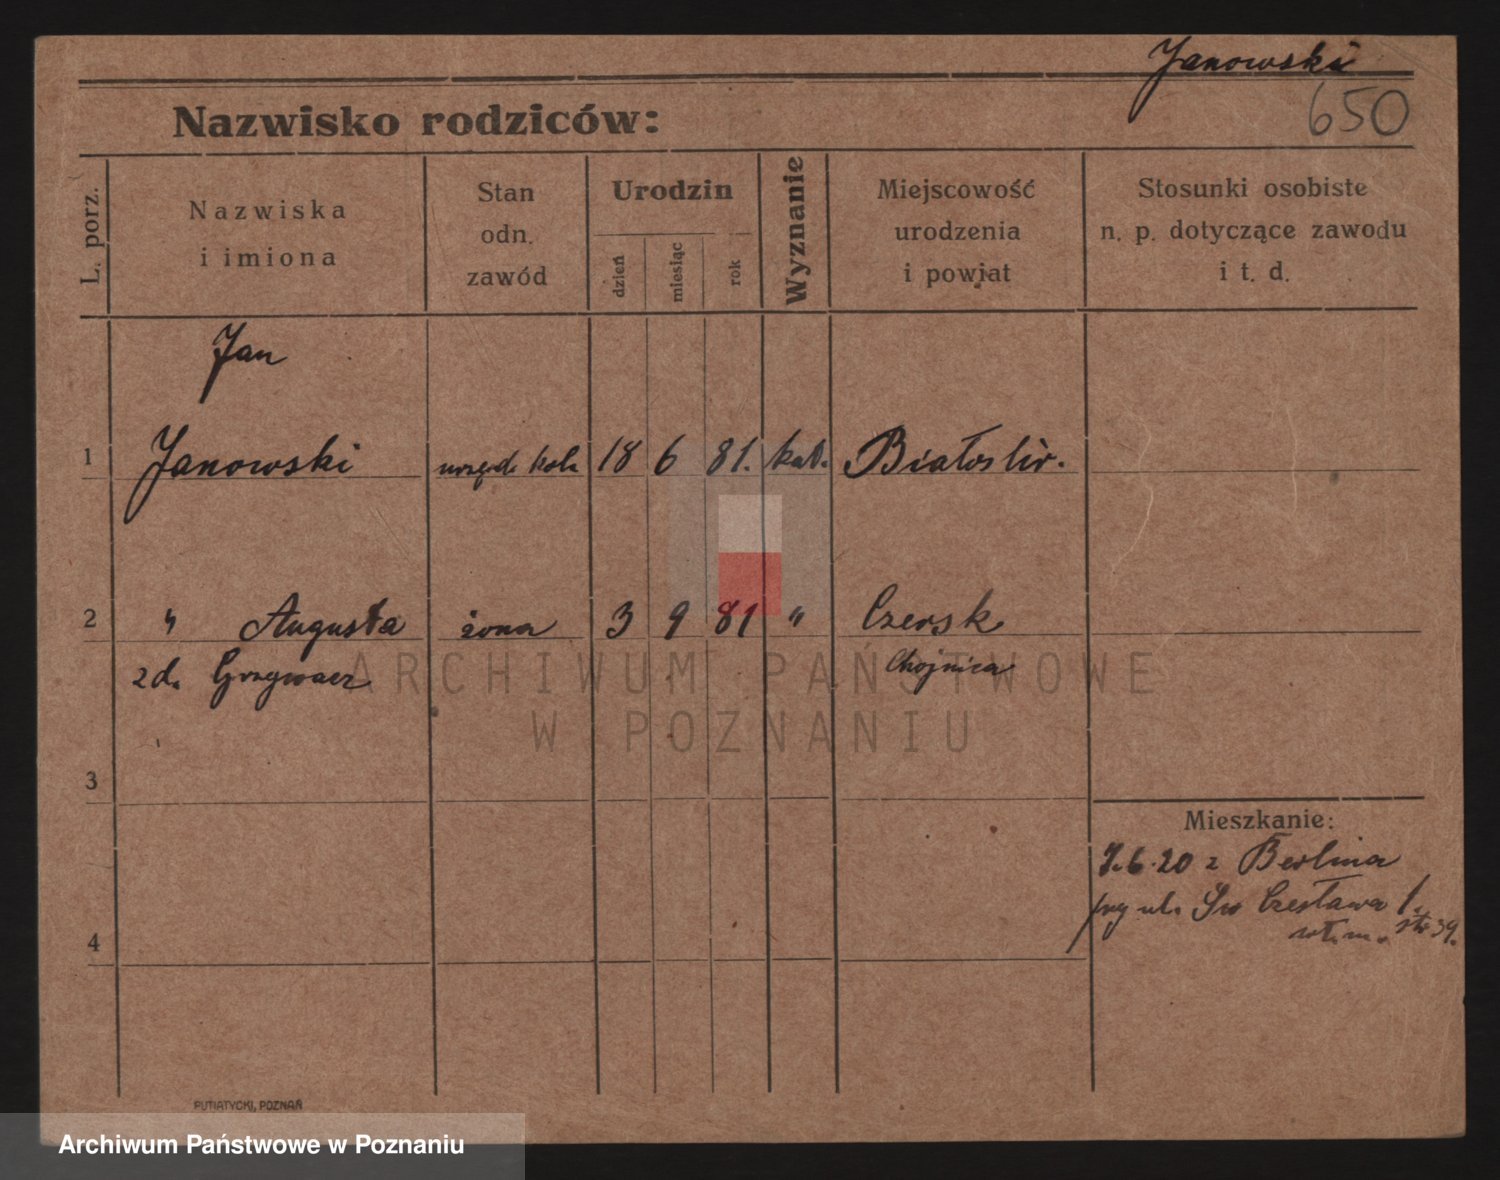 Janowski
650
Nazwisko rodziców:
L. porz.
Nazwiska
i imiona
Stan
odn.
zawód
Urodzin
dzień
miesiąc
rok
Wyznanie
Miejscowość
urodzenia
i powiat
Stosunki osobiste
n. p. dotyczące zawodu
i t. d.
Jan
1 Janowski urzęd. kol. 18 6 81. kat. Białośliw.
2 " Augusta żona 3 9 81 " Czersk
zd. Chojnica
3
Mieszkanie:
7.6.20 z Berlina
ul. Św Czesława
4
ARCHIWUM PAŃSTWOWE
W POZNANIU
PUTIATYCKI, POZNAŃ
Archiwum Państwowe w Poznaniu